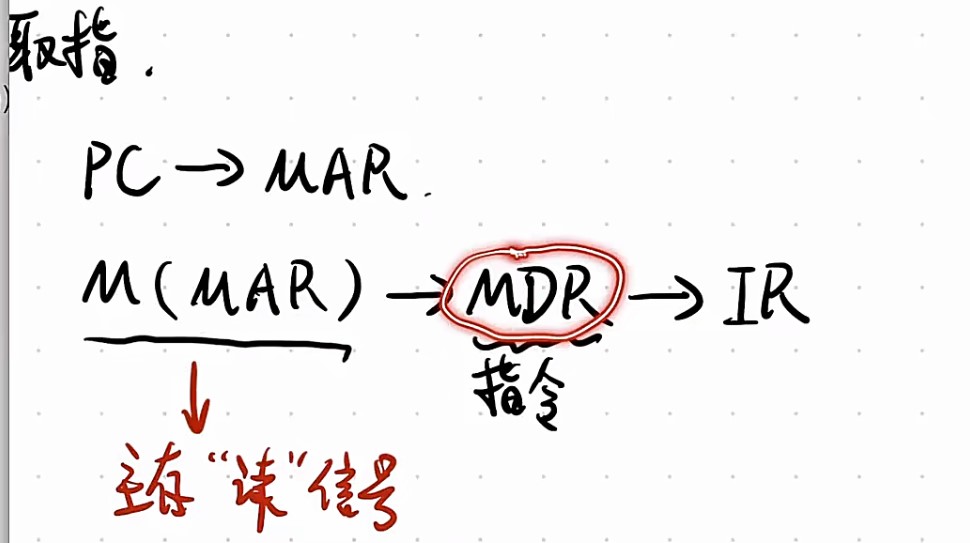 取指.
)
PC → MAR.
M(MAR) → MDR → IR
指令
主存“读”信号